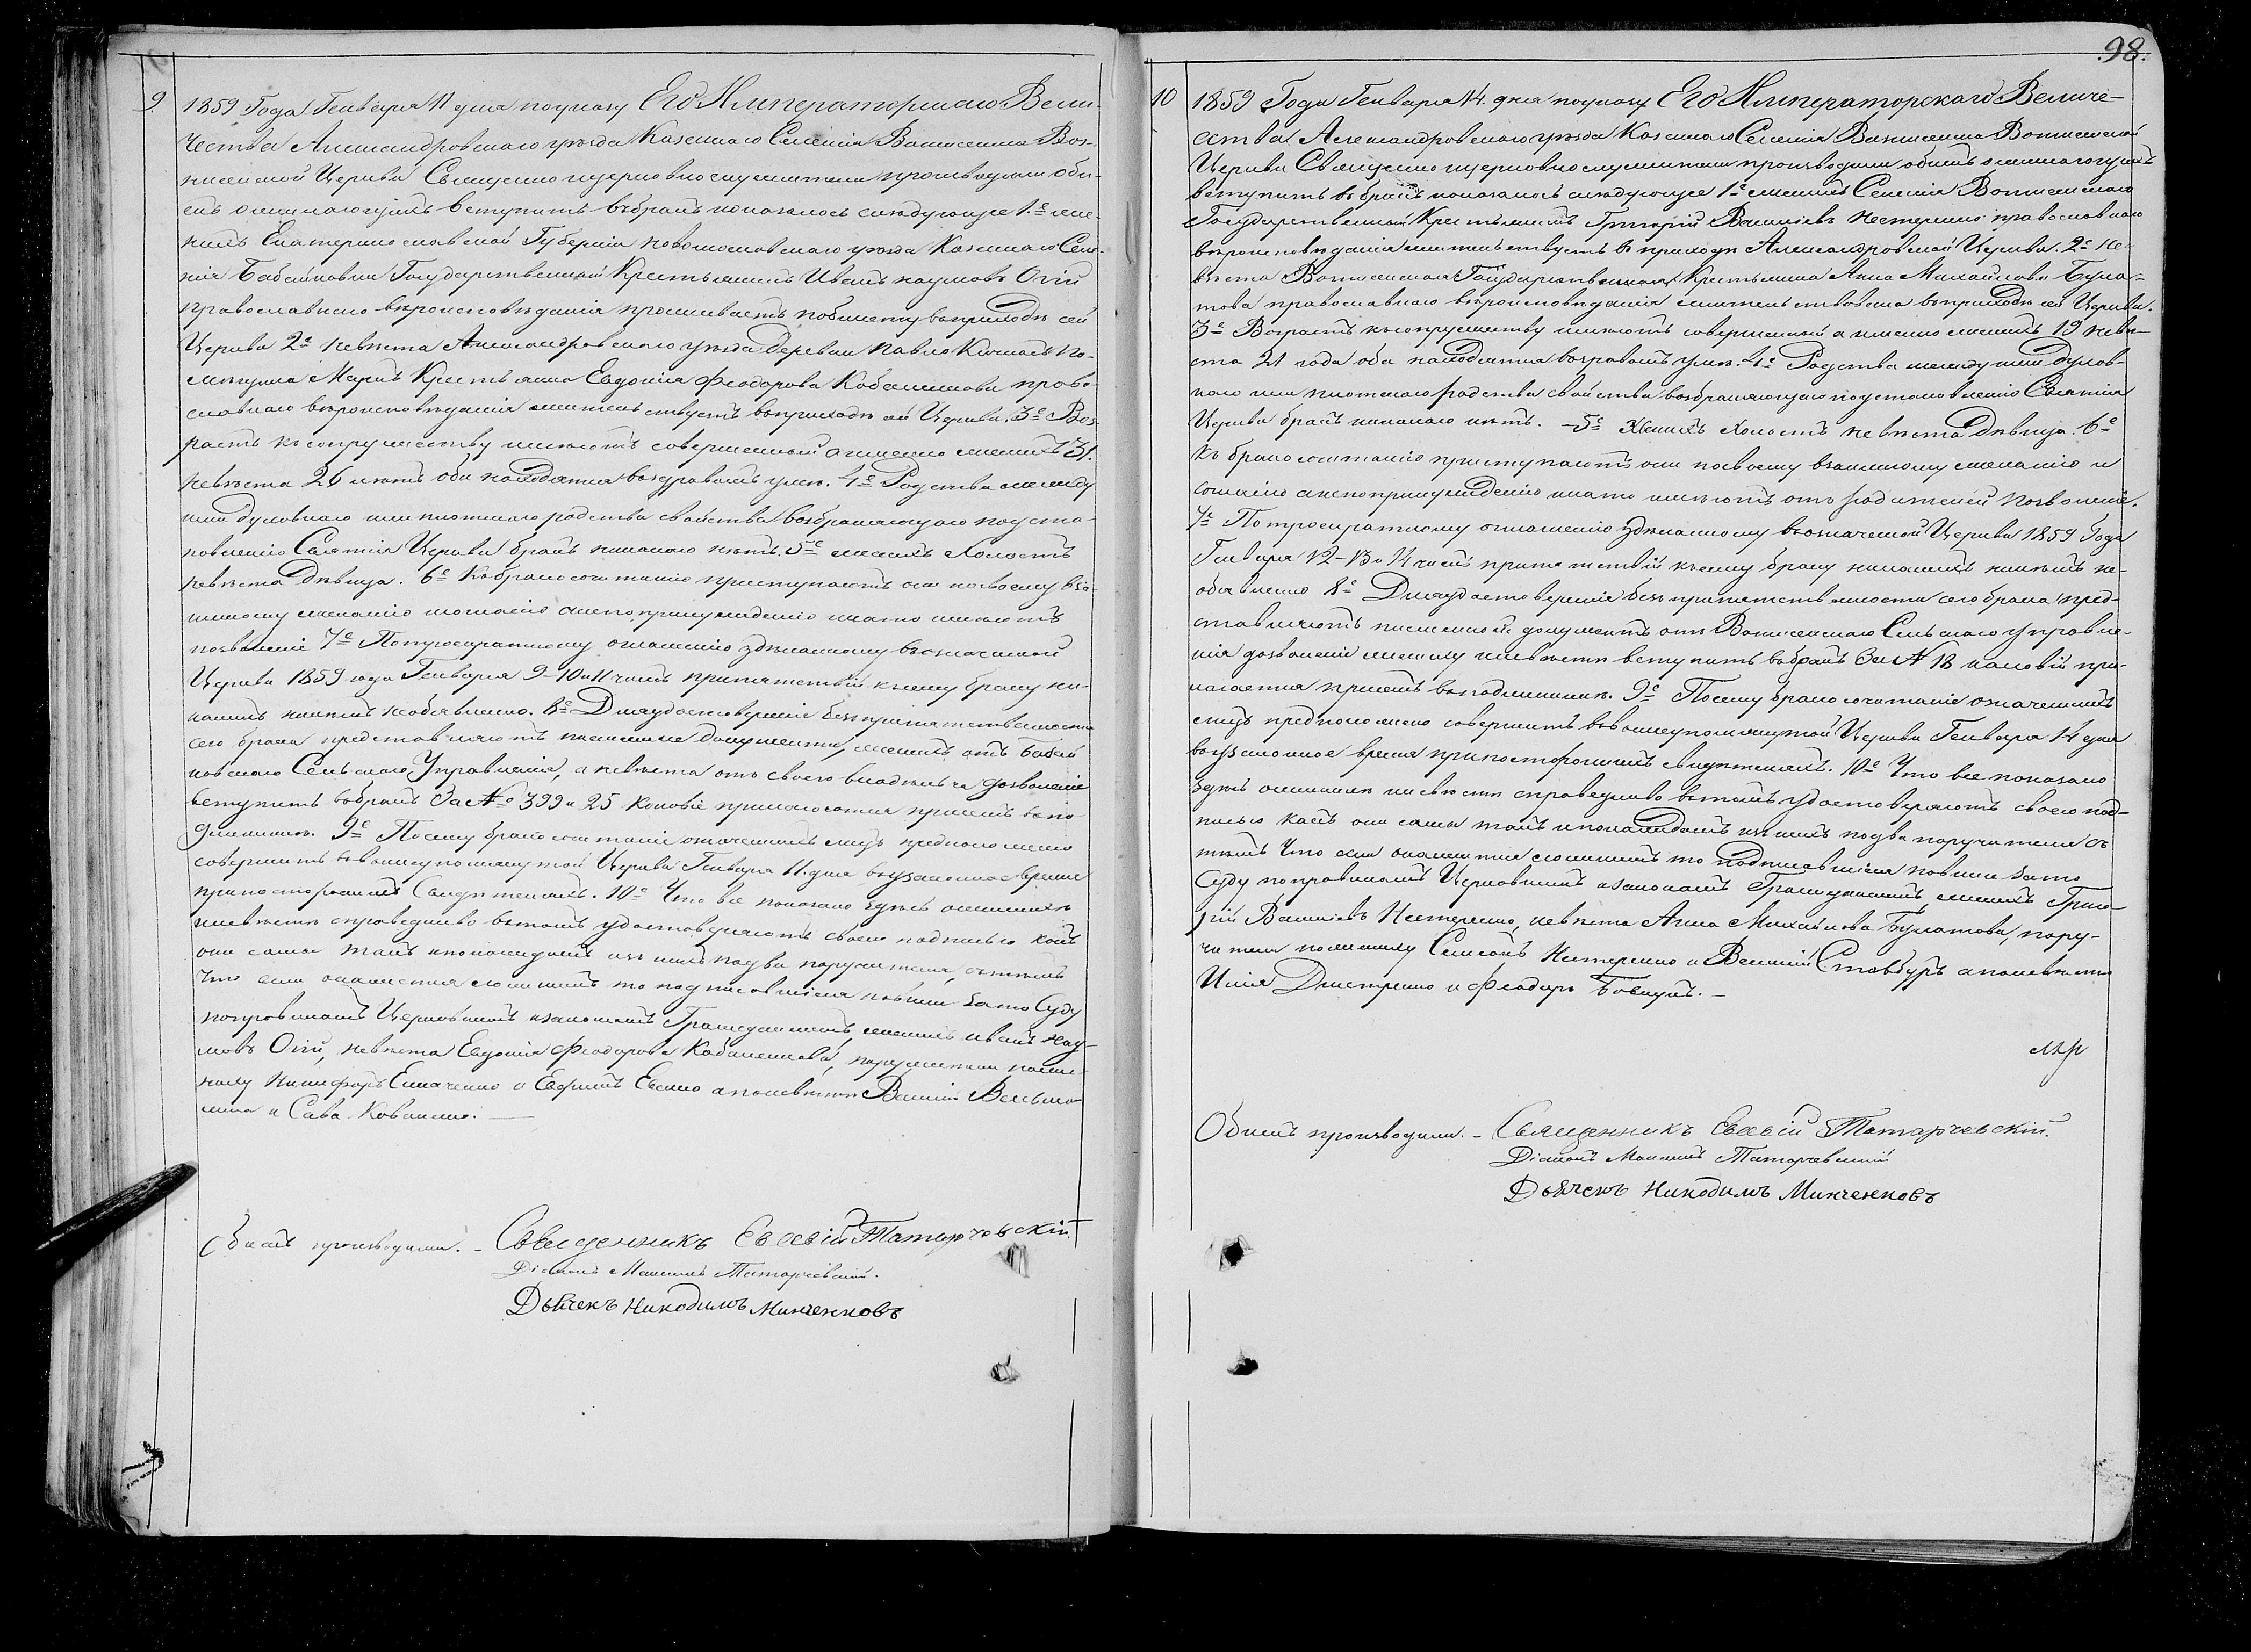 9. 1859 Года Генваря 11 дня по указу Его Императорскаго Вели-
чества Александровскаго уезда Казеннаго Селенія Вознесенка Воз-
несенской Церкви Священно церковно служители производили обы-
скъ о желающихъ вступить въ бракъ и оказалось следующее 1.е же-
нихъ Екатеринославской Губерніи Новомосковскаго уезда Казеннаго Селе-
нія Бабайковки Государственный Крестьянинъ Иванъ Наумовъ Огій
православнаго вероисповеданія проживаетъ по билету въ приходе сей
Церкви 2е невеста Александровскаго уезда деревни Павло Кичкасъ По-
мещика Маркъ Крестьянка Евдокія Феодорова православ-
славнаго вероисповеданія жительствуетъ въ приходе сей Церкви. 3е Воз-
растъ къ супружеству имеютъ совершенный а именно женихъ 31.
невеста 26 летъ оба находятся въ здравомъ уме. 4е Родства между
ими духовнаго или плотскаго родства свойства возбраняющаго по уста-
новленію Святыя Церкви бракъ никакого нетъ. 5е женихъ Холостъ
невеста Девица. 6е Къ бракосочетанію приступаютъ они по своему вза-
имному желанію и согласію а не по принужденію и на то имеютъ
позволеніе 7е По троекратному оглашенію зделанному въ означенной
Церкви 1859 года Генваря 9-10 и 11 чиселъ препятствій къ сему браку ни-
какихъ никемъ необявлено. 8е Для удостоверенія безпрепятственности
сего брака представляютъ письменные документы, женихъ отъ Бабай-
ковскаго Сельскаго Управленія, а невеста отъ своего владельца дозволеніе
вступить въ бракъ За №о 399 и 25 каковіе прилагаются присемъ въ по-
длиннике. 9е Посему бракосочетаніе означенныхъ лицъ предположено
совершить въ вышеупомянутой Церкви Генваря 11. дня въ узаконное время
при постороннихъ Свидетеляхъ. 10е Что все показано здесь о женихе
и невесте справедливо въ томъ удостоверяютъ своею подписью какъ
они сами такъ и по каждомъ изъ нихъ по два поручителя, съ темъ
что если окажется ложнымъ то подписавшіеся повинни за то Суду
по правиламъ Церковнымъ и законамъ Гражданскимъ, женихъ Иванъ Нау-
мовъ Огій, невеста Евдокія Феодорова поручители по же-
ниху Никифоръ и Евфимъ а по невесте Василій
и Сава Коваленко.
Обыскъ производили. - Священникъ Евсевій Татарчевскій.
Діаконъ Максимъ Татарчевскій.
Дьячекъ Никодимъ Минченковъ
98.
10 1859 Года Генваря 14. дня по указу Его Императорскаго Величе-
ства Александровскаго уезда Казеннаго Селенія Вознесенка Вознесенской
Церкви Священно церковно служители производили обыскъ о желающихъ
вступить въ бракъ и оказалось следующее 1е женихъ Селенія Вознесенскаго
Государственный Крестьянинъ Григорій Василіевъ Нестеренко православнаго
вероисповеданія жительствуетъ въ приходе Александровской Церкви. 2е Не-
веста Вознесенская Государственная Крестьянка Анна Михайлова Була-
това православнаго вероисповеданія жительствовала въ приходе сей Церкви.
3е Возрастъ къ супружеству имеютъ совершенный а именно женихъ 19 неве-
ста 21 года оба находятся въ здравомъ уме. 4е Родства между ими духов-
наго или плотскаго родства свойства возбраняющаго по установленію Святыя
Церкви бракъ никакого нетъ. - 5е Женихъ Холостъ невеста Девица. 6е
Къ бракосочетанію приступаютъ они по своему взаимному желанію и
согласію а не по принужденію и на то имеютъ отъ родителей позволеніе.
7е По троекратному оглашенію зделанному въ означенной Церкви 1859 Года
Генваря 12-13 и 14 чиселъ препятствій къ сему браку никакихъ никемъ не-
обявлено 8е Для удостоверенія безпрепятственности сего брака пред-
ставляютъ письменной документъ отъ Вознесенскаго Сельскаго управле-
нія дозволеніе жениху и невесте вступить въ бракъ За № 18 каковій при-
лагается присемъ въ подлиннике. 9е Посему бракосочетаніе означенныхъ
лицъ предположено совершить въ вышеупомянутой Церкви Генваря 14 дня
въ узаконное время при постороннихъ свидетеляхъ. 10е Что все показано
здесь о женихе и невесте справедливо въ томъ удостоверяютъ своею под-
писью какъ они сами такъ и по каждомъ изъ нихъ по два поручителя съ
темъ что если окажется ложнымъ то подписавшіеся повинни за то
Суду по правиламъ Церковнымъ и законамъ Гражданскимъ, женихъ Григо-
рій Василіевъ Нестеренко, невеста Анна Михайлова Булатова, пору-
чители по жениху Семенъ Нестеренко и Василій Стовбуръ а по невесте
Илія Дмитренко и Феодоръ
Обыскъ производили. - Священникъ Евсевій Татарчевскій.
Діаконъ Максимъ Татарчевскій
Дьячекъ Никодимъ Минченковъ